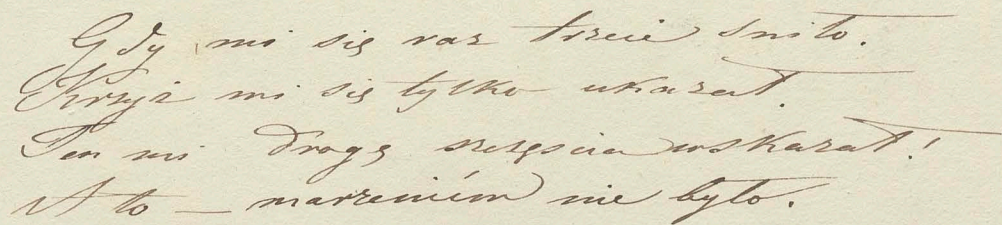 Gdy mi się raz trzeci śniło.
Krzyż mi się tylko ukazał.
Ten mi drogę szczęścia wskazał!
A to — marzeniém nie było.